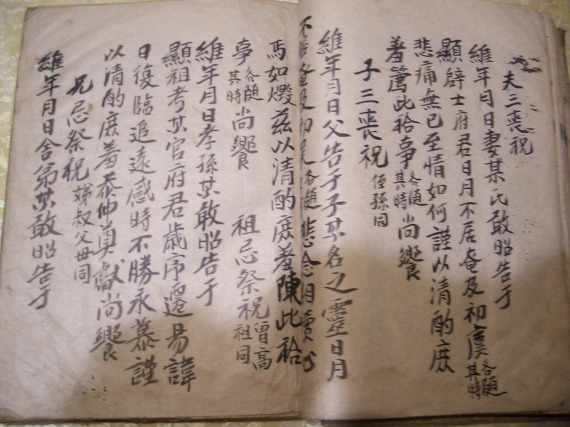 夫三喪祝
維年月日妻某氏敢昭告于
顯辟士府君日月不居奄及初虞各隨其時
悲痛無已至情如何謹以清酌庶
羞薦此祫事各隨其時尚饗
子三喪祝侄孫同
維年月日父告于子某名之靈日月
不居奄及初虞各隨悲念相續心
焉如燬茲以清酌庶羞陳此祫
事各隨其時尚饗 祖忌祭祝曾高祖同
維年月日孝孫某敢昭告于
顯祖考某官府君歲序遷易諱
日復臨追遠感時不勝永慕謹
以清酌庶羞恭伸奠獻尚饗
兄忌祭祝 叔父母同
維年月日舍弟某敢昭告于